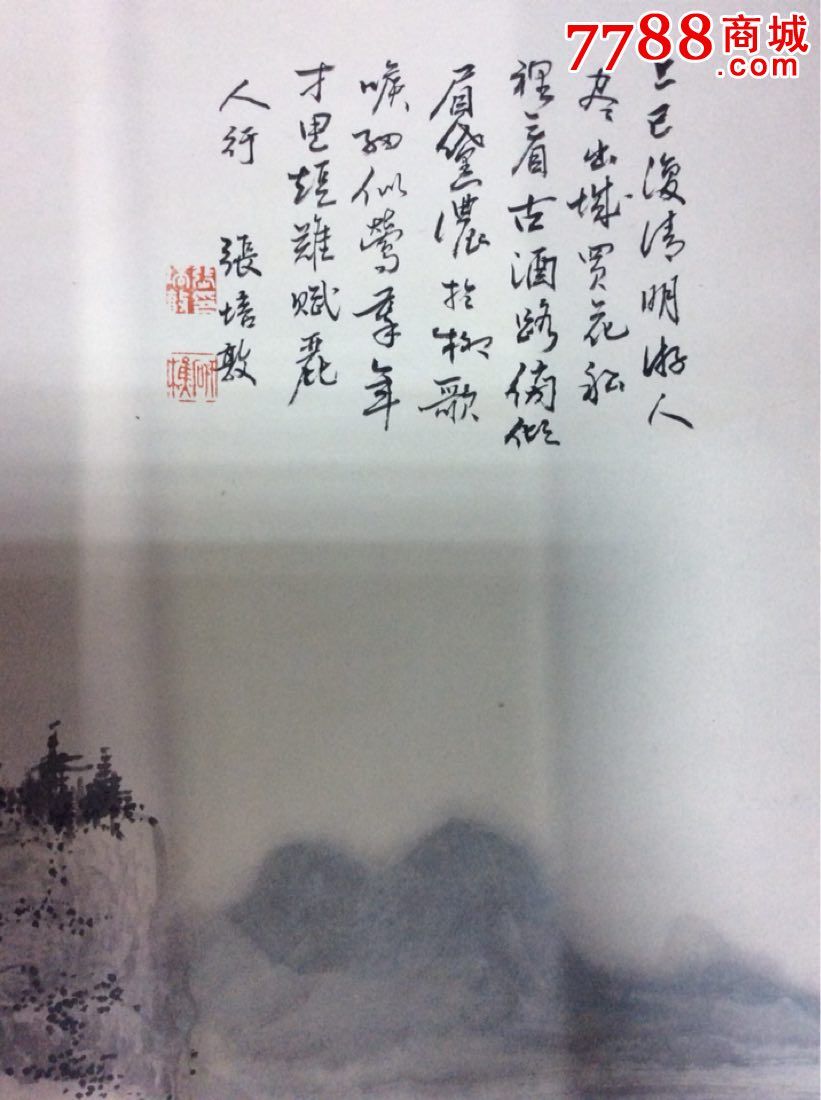 7788商城
上巳復清明游人
尽出城買花
裡看古酒路傍傾
眉黛濃於柳歌
喉細似鶯年
才思短難賦麗
人行 張培敦
研樵